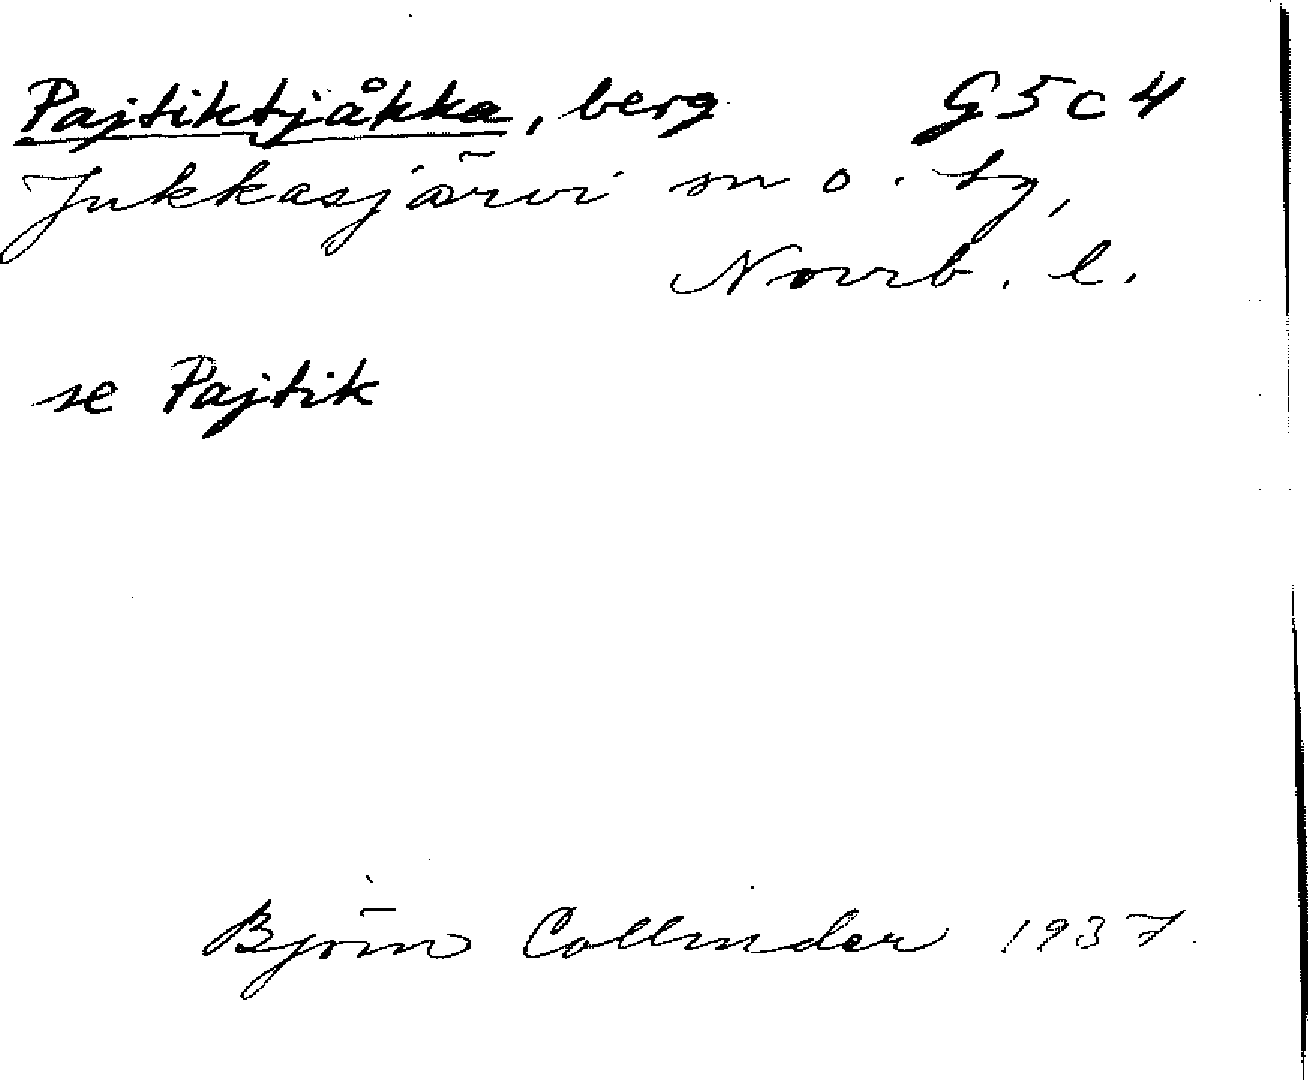 Pajtiktjåkka, berg G5c4
Jukkasjärvi sn o. tg,
Norrb. l.
se Pajtik
Björn Collinder 1937.